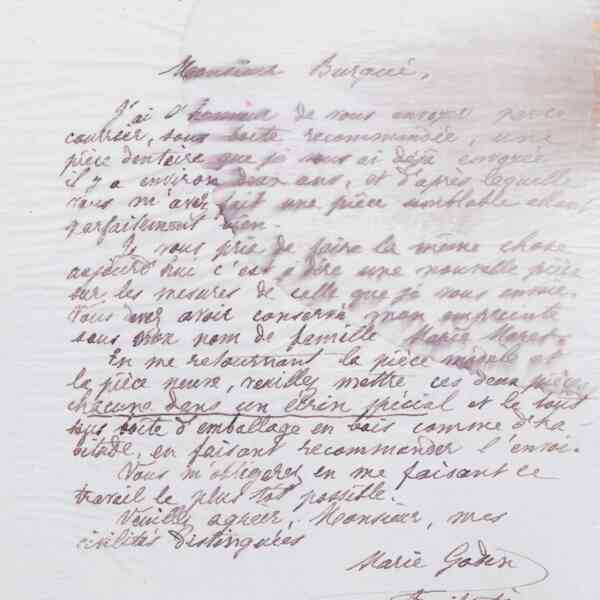 Monsieur Burqué,
J'ai l'honneur de vous envoyer par ce
courrier, sous boîte recommandée, une
pièce dentaire que je vous ai déjà envoyée
il y a environ deux ans, et d'après laquelle
vous m'avez fait une pièce semblable allant
parfaitement bien.
Je vous prie de faire la même chose
aujourd'hui c'est à dire une nouvelle pièce
sur les mesures de celle que je vous envoie.
Vous devez avoir conservé mon empreinte
sous mon nom de famille Marie
En me retournant la pièce modèle et
la pièce neuve, veuillez mettre ces deux pièces
chacune dans un écrin spécial et le tout
sous boîte d'emballage en bois comme d'ha-
bitude, en faisant recommander l'envoi.
Vous m'obligerez en me faisant ce
travail le plus tôt possible.
Veuillez agréer, Monsieur, mes
civilités distinguées
Marie Godin